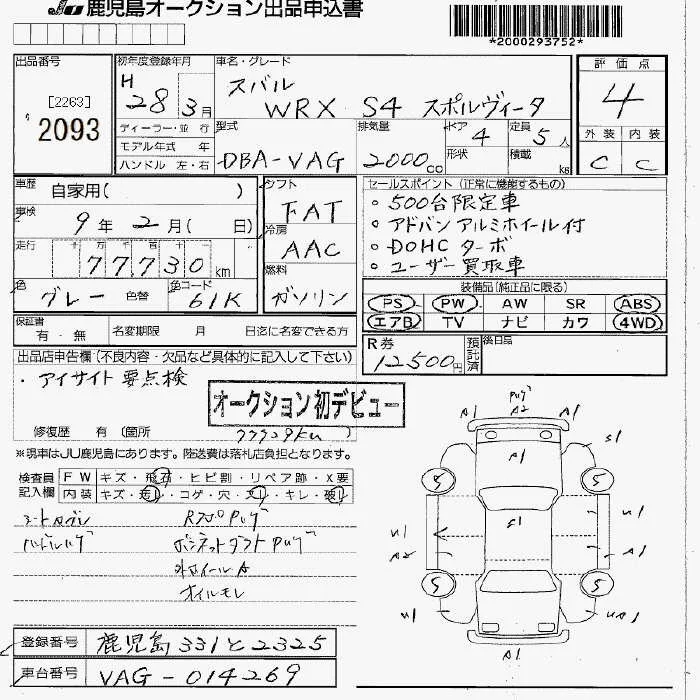 JU 鹿児島オークション出品申込書
*2000293752*
出品番号
[2263]
2093
初年度登録年月
H 28 3月
ディーラー・並 行
モデル年式 年
ハンドル 左・右
車名・グレード
スバル
WRX S4 スポルヴィータ
型式
DBA-VAG
排気量
2000cc
ドア 4
形状
定員 5人
積載 kg
評価点
4
外装 内装
C C
車歴
自家用( )
車検
9年 2月( 日)
走行
十万千百十一
77730km
色
グレー 色替
色コード
61K
シフト
FAT
冷房
AAC
燃料
ガソリン
セールスポイント (正常に機能するもの)
500台限定車
アドバンアルミホイール付
DOHCターボ
ユーザー買取車
装備品(純正品に限る)
PS PW AW SR ABS
エアB TV ナビ カワ 4WD
保証書
有・無
名変期限 月 日迄に名変できる方
R券
12500円
預託済
後日品
出品店申告欄(不良内容・欠品など具体的に記入して下さい)
・アイサイト要点検
オークション初デビュー
修復歴 有 (箇所 )
77729km
※現車はJU鹿児島にあります。陸送費は落札店負担となります。
検査員記入欄
FW キズ・飛石・ヒビ割・リペア跡・X要
内装 キズ・・コゲ・穴・・キレ・
オイルモレ
登録番号
鹿児島 331 と 2325
車台番号
VAG-014269
A1 A2 A1
A1 S1
5 5
S1
U1 U1
A2 A1
5 5
U1 UA1
A1